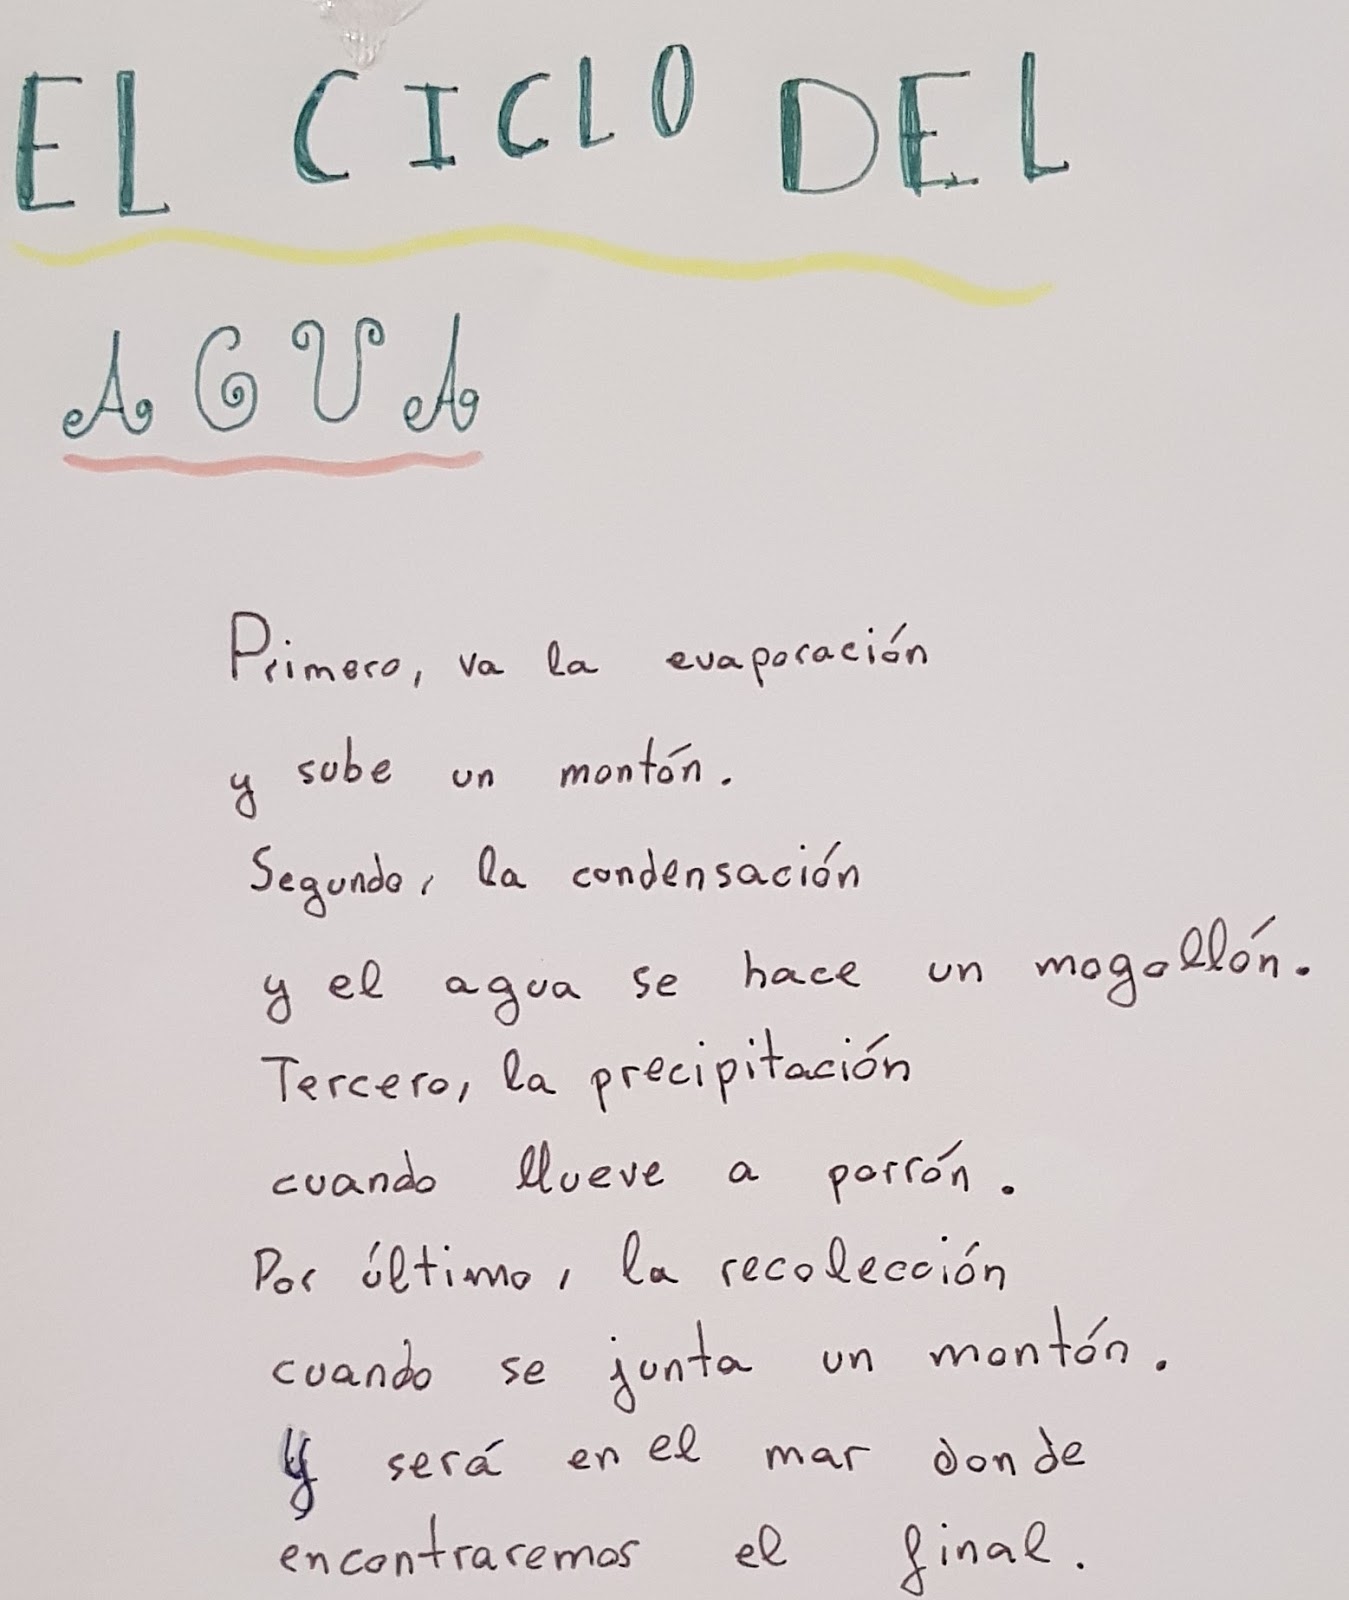 EL CICLO DEL
AGUA
Primero, va la evaporación
y sube un montón.
Segundo, la condensación
y el agua se hace un mogollón.
Tercero, la precipitación
cuando llueve a porrón.
Por último, la recolección
cuando se junta un montón.
Y será en el mar donde
encontraremos el final.